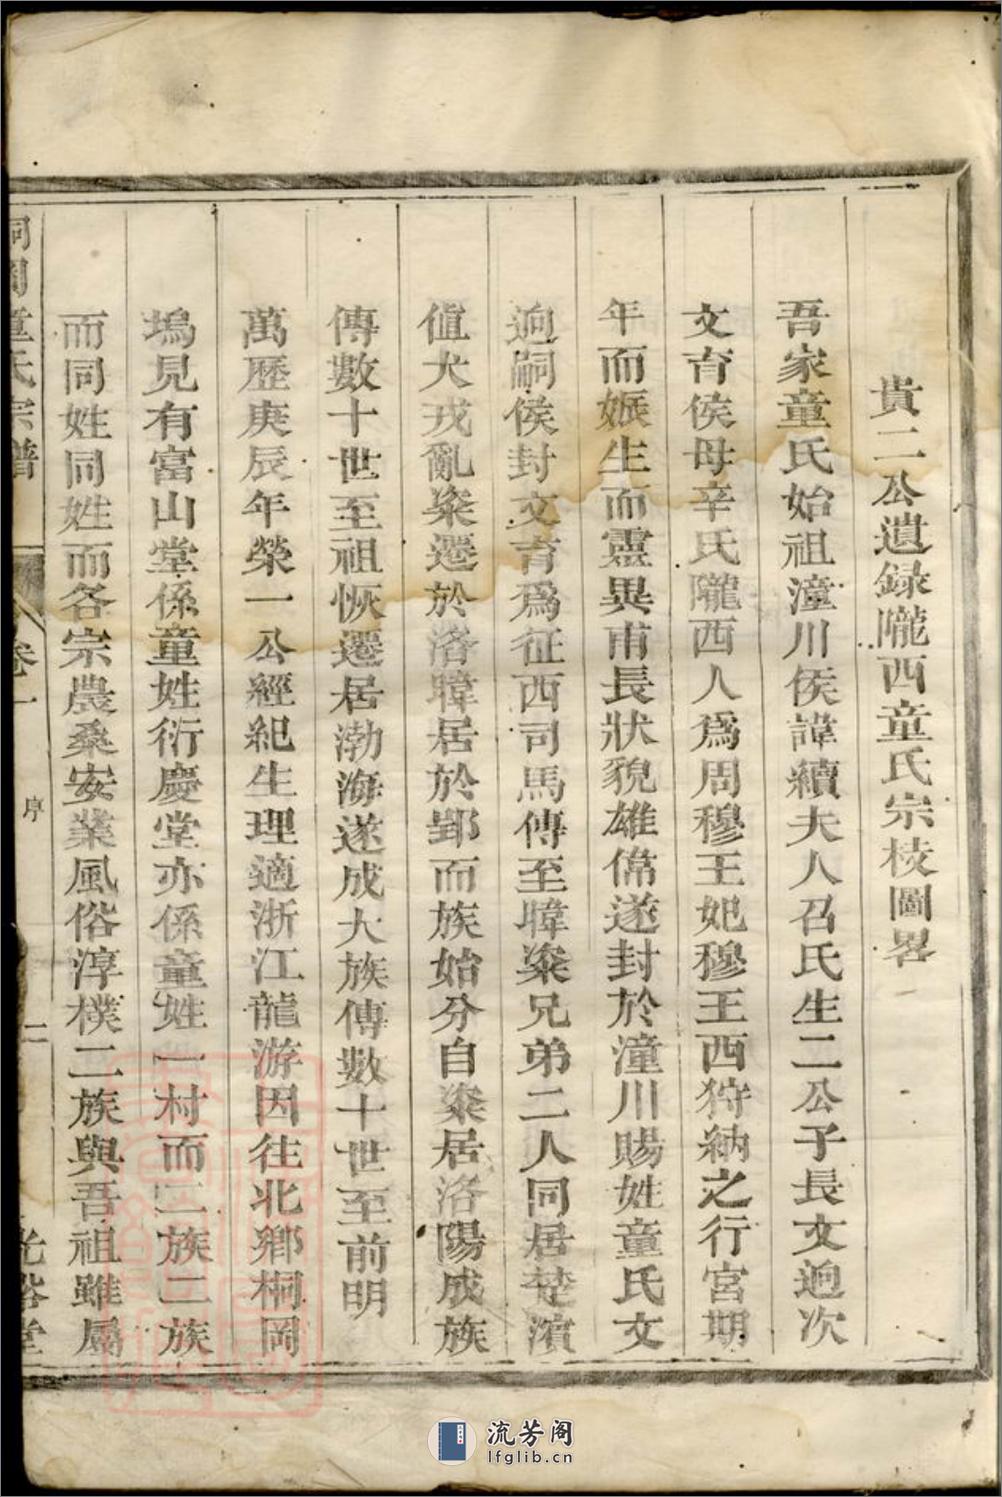 貴二公遺録隴西童氏宗枝圖畧
吾家童氏始祖潼川侯諱續夫人召氏生二公子長文逈次
文育侯母辛氏隴西人爲周穆王妃穆王西狩納之行宮期
年而娠生而靈異甫長狀貌雄偉遂封於潼川賜姓童氏文
逈嗣侯封文育爲征西司馬傳至暐楽兄弟二人同居楚濱
値犬戎亂楽遷於洛暐居於鄞而族始分自楽居洛陽成族
傳數十世至祖恢遷居渤海遂成大族傳數十世至前明
萬歷庚辰年榮一公經紀生理適浙江龍游因往北鄉桐岡
塢見有富山堂係童姓衍慶堂亦係童姓一村而二族二族
而同姓同姓而各宗農桑安業風俗淳樸二族與吾祖雖屬
桐岡童氏宗譜
卷一
序
二
光裕堂
流芳阁
lfglib.cn